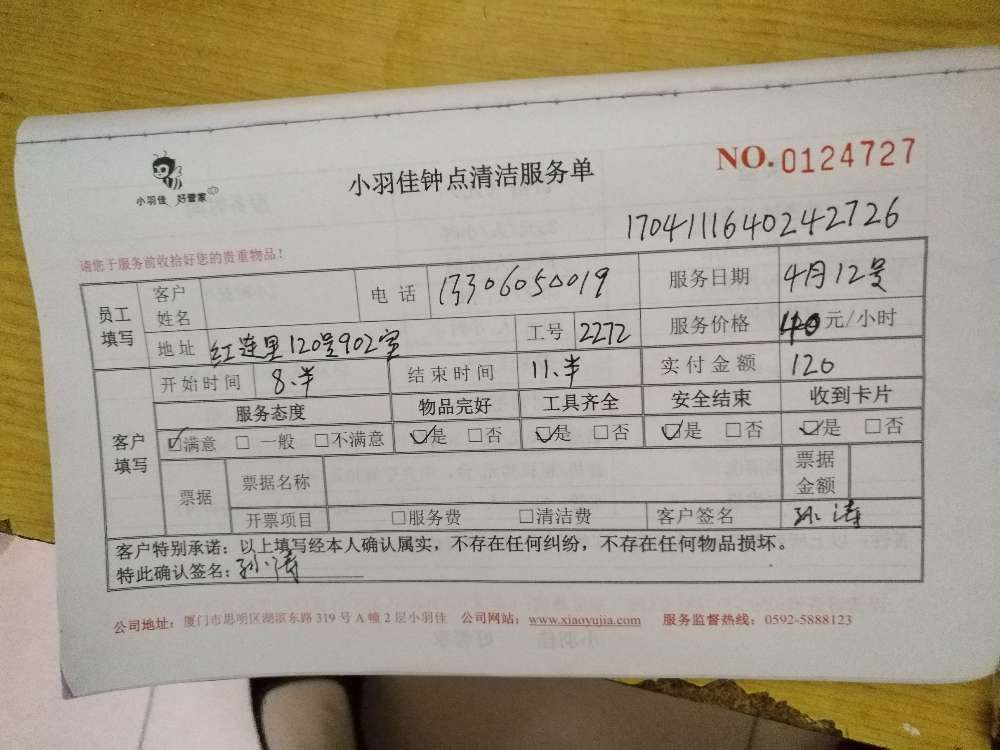 小羽佳 好管家
小羽佳钟点清洁服务单
NO.0124727
1704111640242726
请您于服务前收拾好您的贵重物品！
员工填写 客户姓名 电话 13306050019 服务日期 4月12号
地址 红莲里120号902室 工号 2272 服务价格 40元/小时
客户填写 开始时间 8.半 结束时间 11.半 实付金额 120
服务态度 物品完好 工具齐全 安全结束 收到卡片
☑满意 □一般 □不满意 ☑是 □否 ☑是 □否 ☑是 □否 ☑是 □否
票据 票据名称 票据金额
开票项目 □服务费 □清洁费 客户签名 孙涛
客户特别承诺：以上填写经本人确认属实，不存在任何纠纷，不存在任何物品损坏。
特此确认签名：孙涛
公司地址：厦门市思明区湖滨东路319号A幢2层小羽佳 公司网站：www.xiaoyujia.com 服务监督热线：0592-5888123